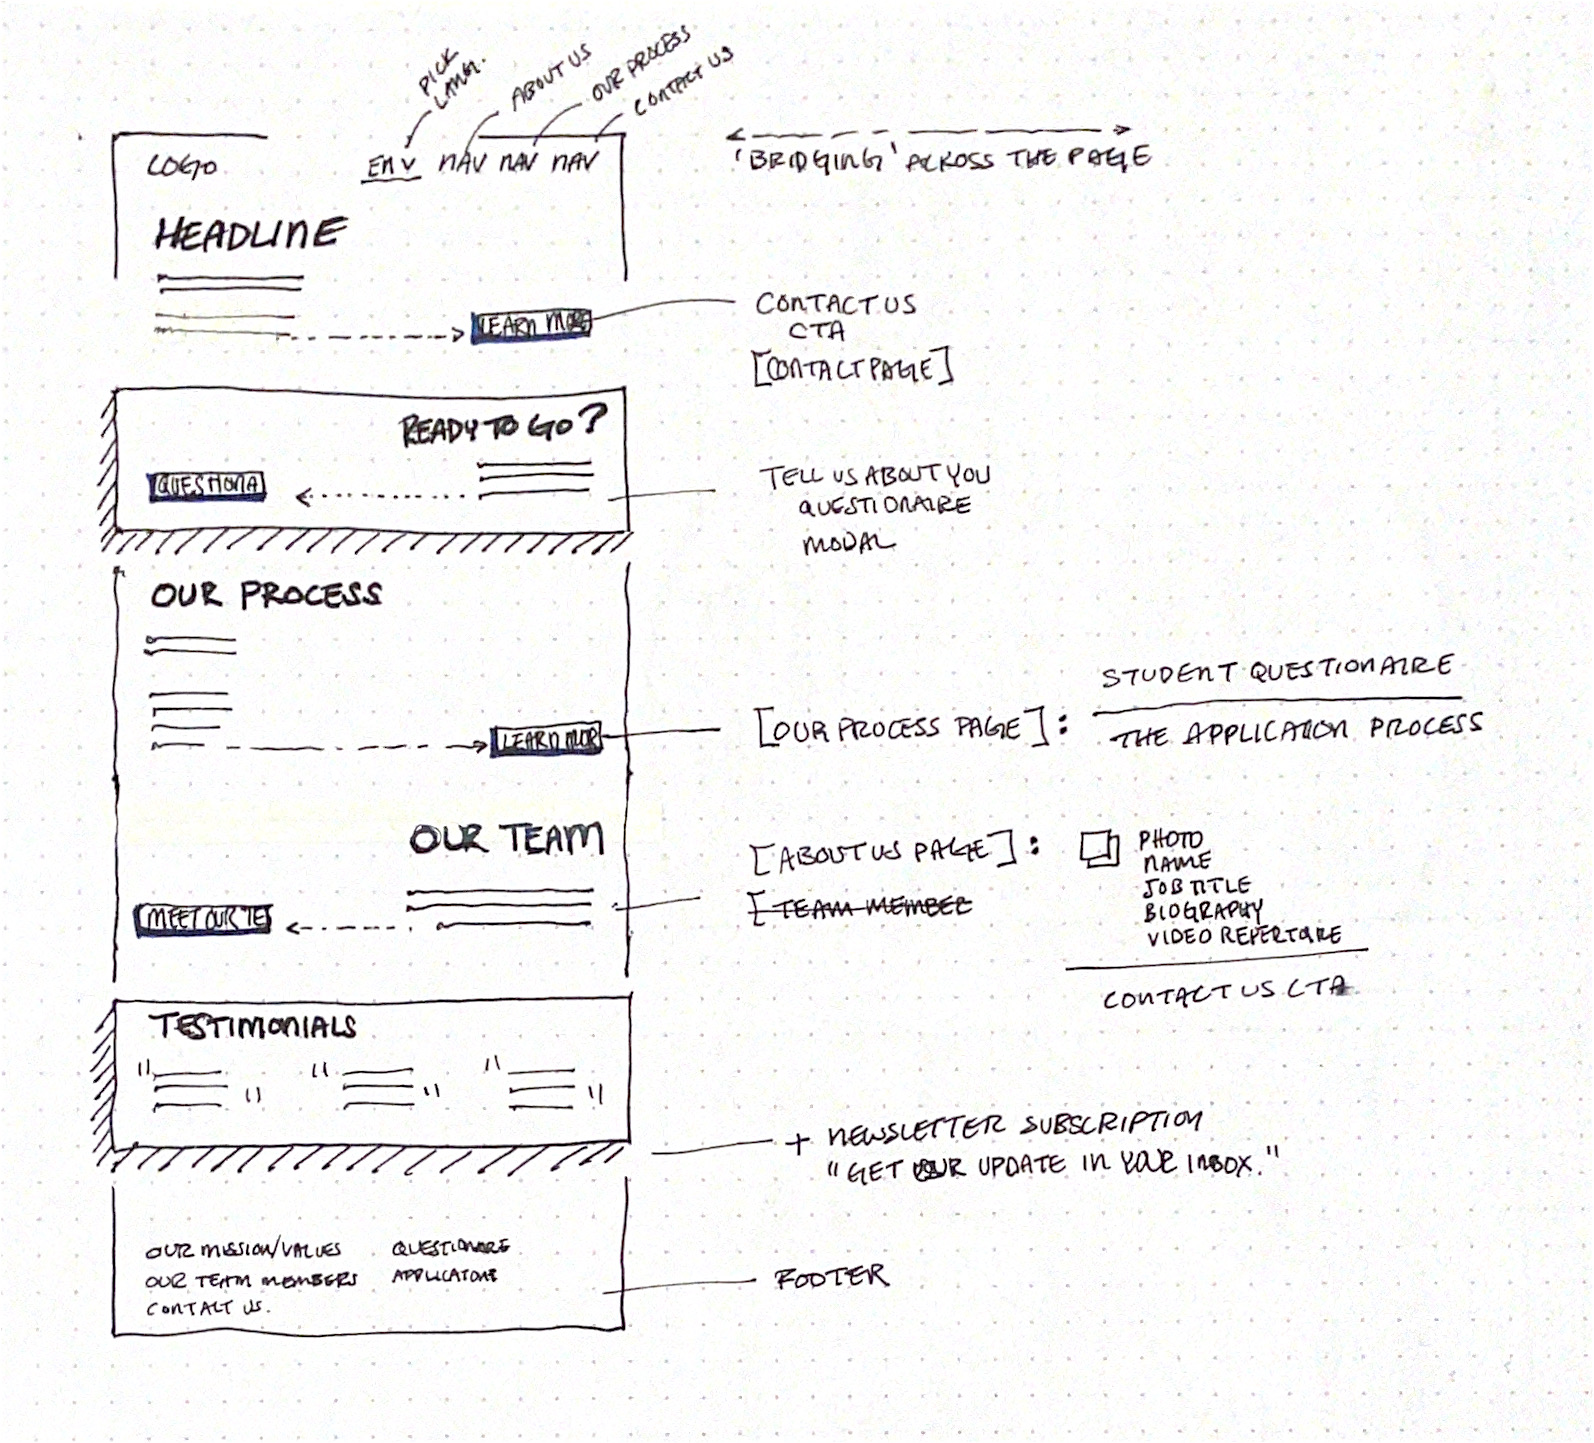 PICK
LANG.
ABOUT US
OUR PROCESS
CONTACT US
LOGO
EN v NAV NAV NAV
'BRIDGING' ACROSS THE PAGE
HEADLINE
LEARN MORE
CONTACT US
CTA
[CONTACT PAGE]
READY TO GO?
QUESTIONA
TELL US ABOUT YOU
QUESTIONAIRE
MODAL
OUR PROCESS
LEARN MOR
[OUR PROCESS PAGE]:
STUDENT QUESTIONAIRE
THE APPLICATION PROCESS
OUR TEAM
MEET OUR TE
[ABOUT US PAGE]:
[TEAM MEMBER
PHOTO
NAME
JOB TITLE
BIOGRAPHY
VIDEO REPERTOIRE
CONTACT US CTA
TESTIMONIALS
" "
" "
" "
+ NEWSLETTER SUBSCRIPTION
"GET OUR UPDATE IN YOUR INBOX."
OUR MISSION/VALUES QUESTIONAIRE
OUR TEAM MEMBERS APPLICATIONS
CONTACT US.
FOOTER